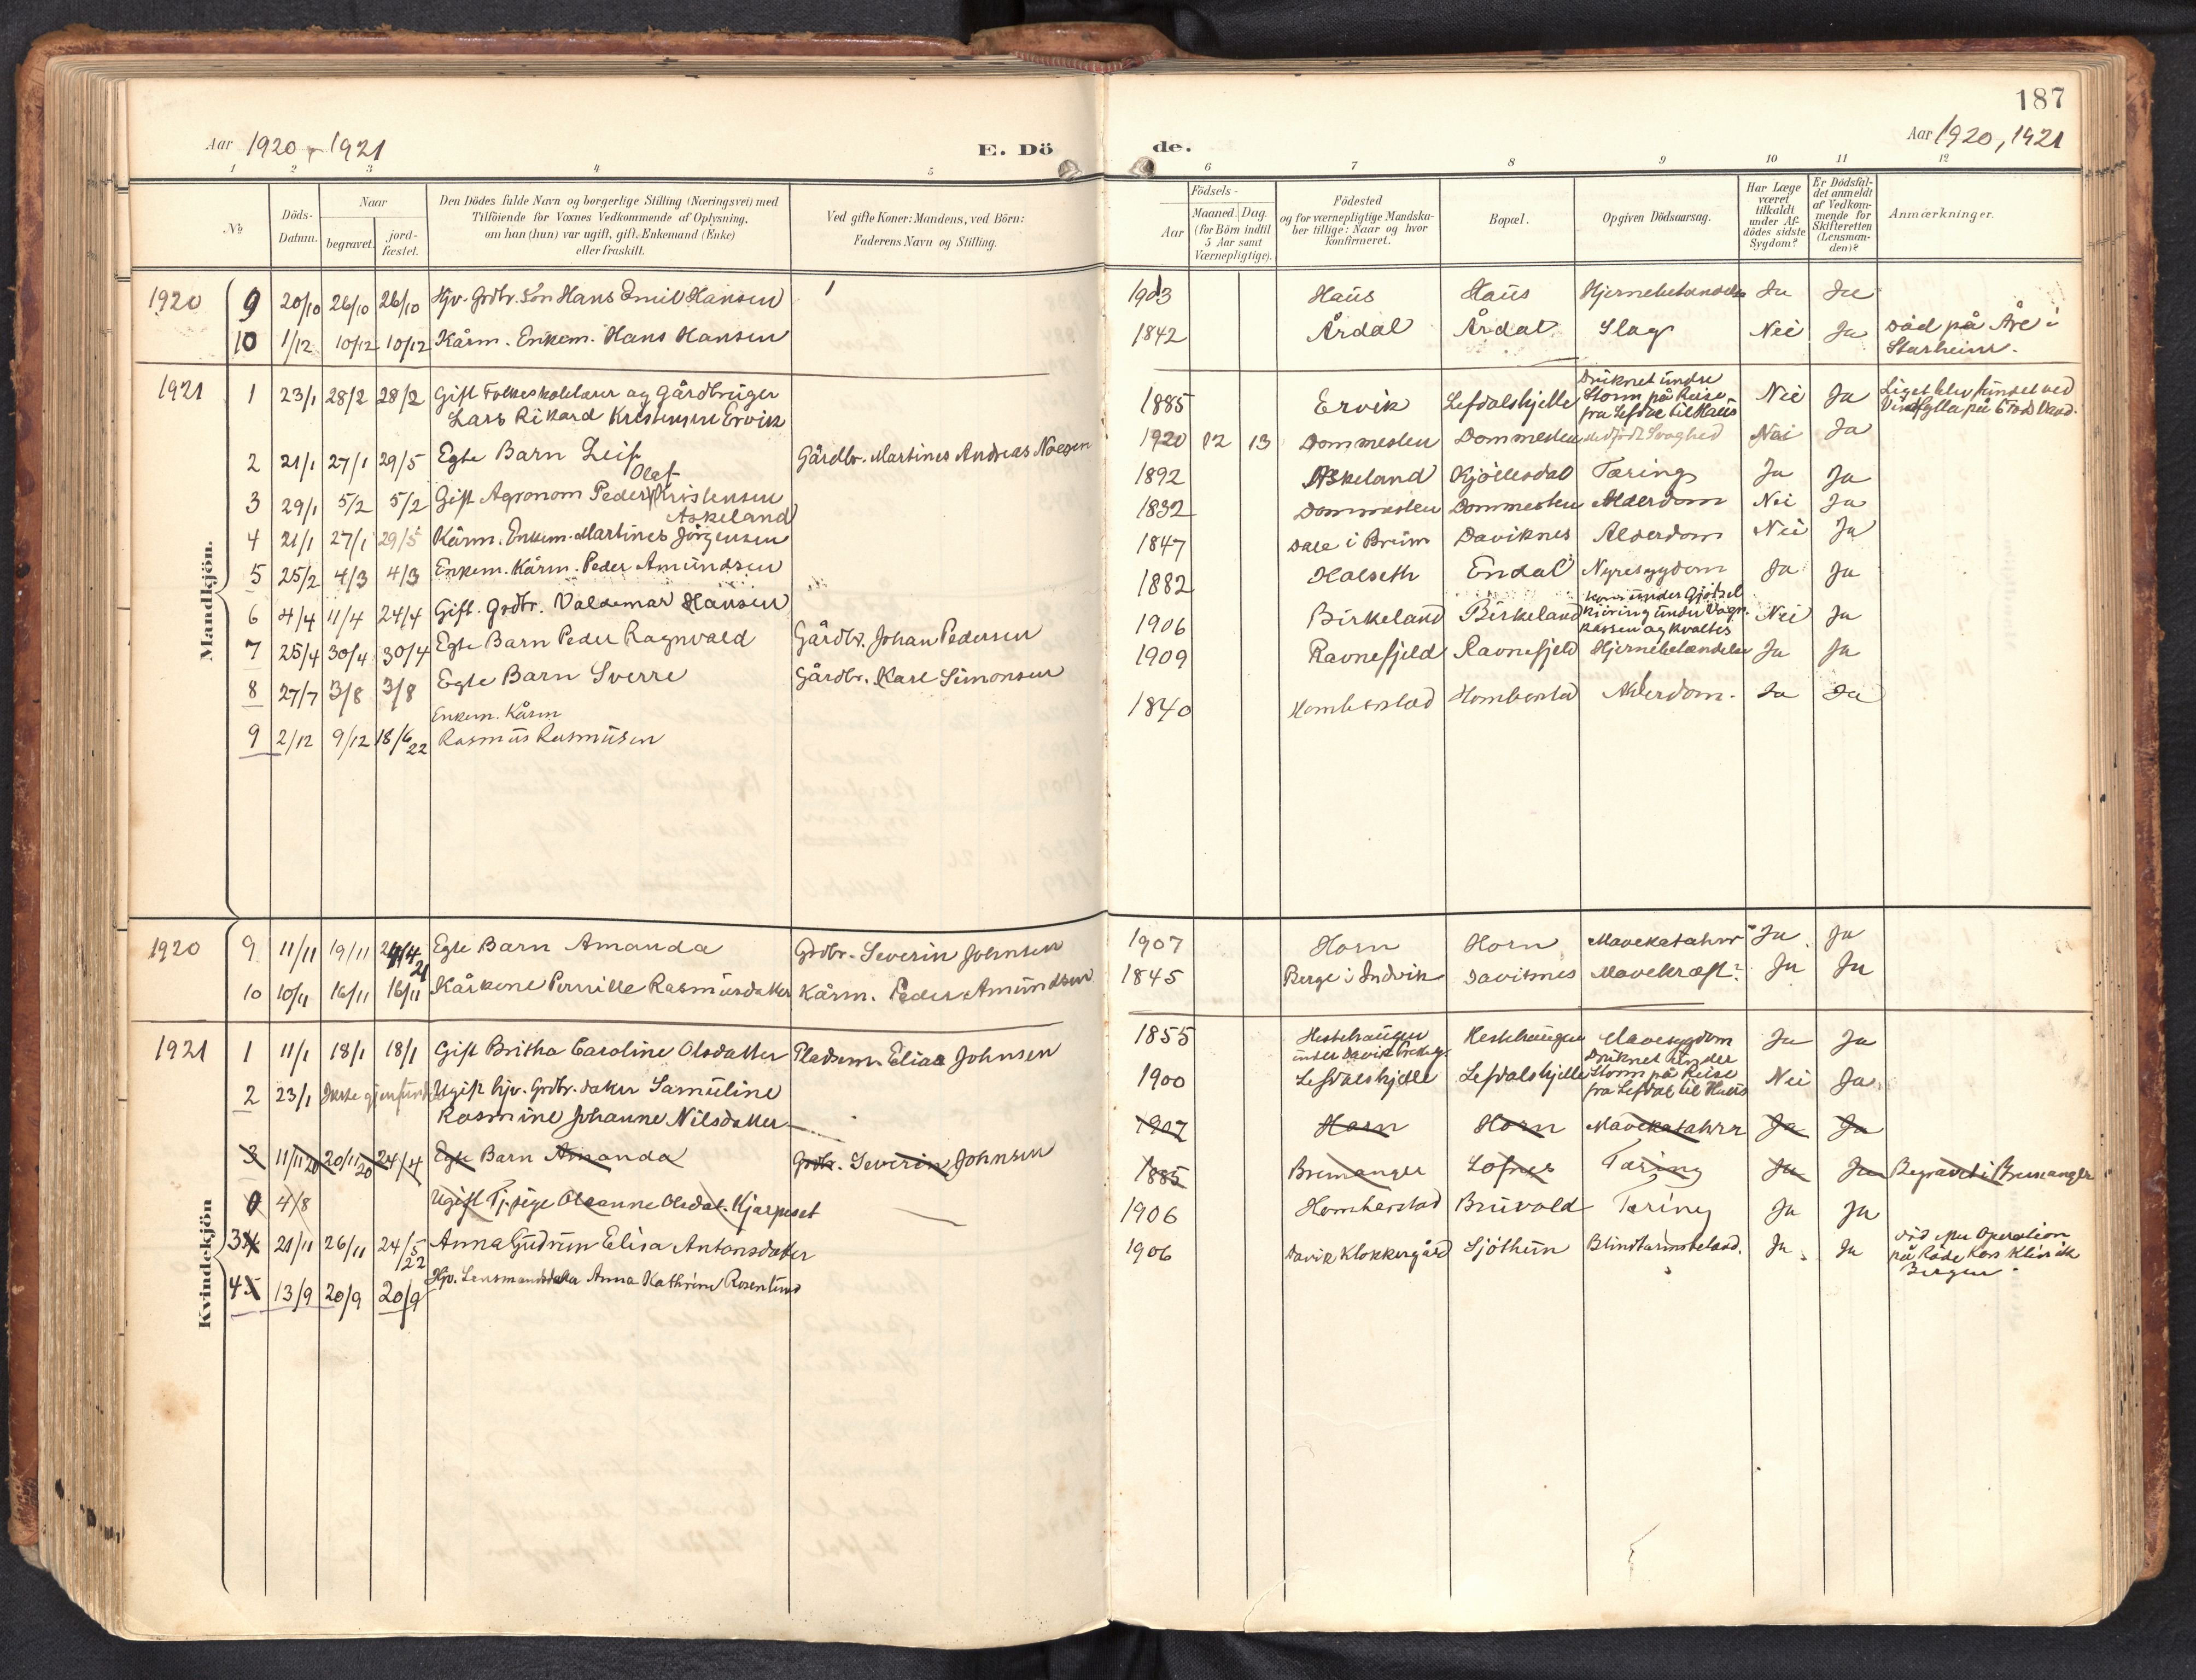 187
Aar 1920 - 1921
E. Dö
de.
Aar 1920, 1921
1 2 3 4 5 6 7 8 9 10 11 12
№
Döds-
Datum.
Naar
begravet.
jord-
fæstet.
Den Dödes fulde Navn og borgerlige Stilling (Næringsvei) med
Tilföiende for Voxnes Vedkommende af Oplysning,
om han (hun) var ugift, gift, Enkemand (Enke)
eller fraskilt.
Ved gifte Koner: Mandens, ved Börn:
Faderens Navn og Stilling.
Födsels-
Aar
Maaned. Dag.
(for Börn indtil
5 Aar samt
Værnepligtige).
Födested
og for værnepligtige Mandska-
ber tillige: Naar og hvor
konfirmeret.
Bopæl.
Opgiven Dödsaarsag.
Har Læge
været
tilkaldt
under Af-
dödes sidste
Sygdom?
Er Dödsfal-
det anmeldt
af Vedkom-
mende for
Skifteretten
(Lensman-
den)?
Anmærkninger.
Mandkjön.
1920 9 20/10 26/10 26/10 Hjv. Grdbr. Sön Hans Emil Hansen 1903 Haüs Haüs Hjernebetændelse Ja Ja
10 1/12 10/12 10/12 Kårm. Enkem. Hans Hansen 1842 Årdal Årdal Slag Nei Ja Död på Åre i
Starheim.
1921 1 23/1 28/2 28/2 Gift Folkeskolelærer og Gårdbrüger
Lars Rikard Kristensen Ervik 1885 Ervik Lefdalshjelle Drüknet ündre
Storm på Reise
fra Lefdal til Haüs Nei Ja Liget blev fündet ved
på 6 Fods Vand.
2 21/1 27/1 29/5 Egte Barn Leif Gårdbr. Martines Andreas 1920 12 13 Dommesten Dommesten medfödt Svaghed Nei Ja
3 29/1 5/2 5/2 Gift Agronom Peder Olaf Kristensen
Askeland 1892 Askeland Kjöllesdal Tæring Ja Ja
4 21/1 27/1 29/5 Kårm. Enkem. Martines Jörgensen 1832 Dommesten Dommesten Alderdom Nei Ja
5 25/2 4/3 4/3 Enkem. Kårm. Peder Amündsen 1847 Dale i Breim Daviknes Alderdom Nei Ja
6 4/4 11/4 24/4 Gift. Grdbr. Valdemar Hansen 1882 Kolseth Endal Nyresygdom Ja Ja
7 25/4 30/4 30/4 Egte Barn Peder Ragnvald Gårdbr. Johan Pedersen 1906 Birkeland Birkeland Kom ünder Gjödsel
kjöring ünder Vogn-
kassen og kvaltes Nei Ja
8 27/7 3/8 3/8 Egte Barn Sverre Gårdbr. Karl Simonsen 1909 Ravnefjeld Ravnefjeld Hjernebetændelse Ja Ja
9 2/12 9/12 18/6 22 Enkem. Kårm
Rasmüs Rasmüsen 1840 Homberstad Homberstad Alderdom. Ja Ja
Kvindekjön
1920 9 11/11 19/11 24/4 21 Egte Barn Amanda Grdbr. Severin Johnsen 1907 Horn Horn Mavekatahrr Ja Ja
10 10/11 16/11 16/11 Kårkone Pernille Rasmüsdatter Kårm. Peder Amündsen 1845 Berge i Indvik Daviknes Mavekræft? Ja Ja
1921 1 11/1 18/1 18/1 Gift Britha Caroline Olsdatter Pladsm. Elias Johnsen 1855 Hestehaügen
ünder Davik Hestehaügen Mavesygdom Ja Ja
2 23/1 Ikke gjenfündet Ugift hjv. Grdbr. datter Samüline
Rasmine Johanne Nilsdatter 1900 Lefdalshjelle Lefdalshjelle Drüknet ünder
Storm på Reise
fra Lefdal til Haüs Nei Ja
3 11/11 20 20/11 20 24/4 Egte Barn Amanda Grdbr. Severin Johnsen 1907 Horn Horn Mavekatahrr Ja Ja
4/8 Ugift Tj. pige Oleanne Olsdat. Kjarpeset 1885 Bremanger Lofnes Tæring Ja Ja Begravet i Bremanger
3 4 21/11 26/11 24/5 22 Anna Güdrün Elisa Antonsdatter 1906 Homberstad Brüvold Tæring Ja Ja
4 5 13/9 20/9 20/9 Hjv. Lensmandsdatter Anna Kathrine Rosenlund 1906 Davik Klokkergård Sjöthün Blindtarmsbetænd. Ja Ja Död efter Operation
på Röde Kors Klinik
Bergen.